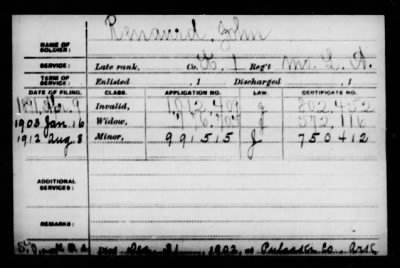 Renard, John
NAME OF SOLDIER:
SERVICE: Late rank, Co. B, 1 Reg't Mo. L. A.
TERM OF SERVICE: Enlisted , 1 Discharged , 1
DATE OF FILING. CLASS. APPLICATION NO. LAW. CERTIFICATE NO.
1891 Apr. 9 Invalid, g 802,452
1903 Jan. 16 Widow, g 572,116
1912 Aug. 8 Minor, 991515 g 750412
ADDITIONAL SERVICES:
REMARKS:
Dec. 21 1902, at Pulaski Co. Ark